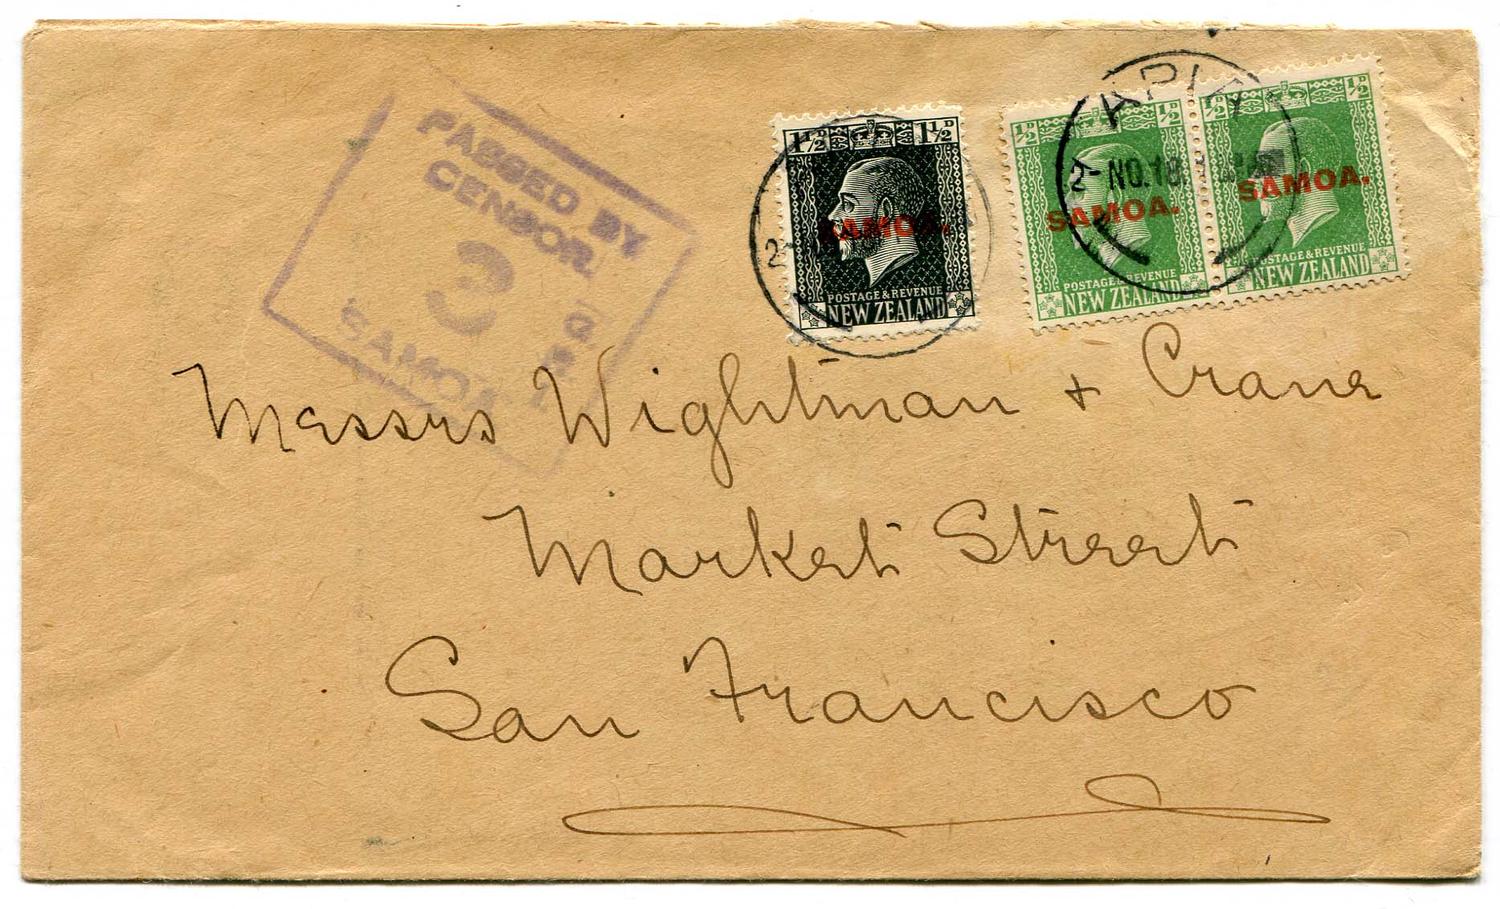 PASSED BY
CENSOR.
3
SAMOA
1½D 1½D
SAMOA.
POSTAGE & REVENUE
NEW ZEALAND
2-
½ ½D
SAMOA.
POSTAGE & REVENUE
NEW ZEALAND
½D ½D
SAMOA.
POSTAGE & REVENUE
NEW ZEALAND
APIA
2-NO.18
Messrs Wightman + Crane
Market Street
San Francisco